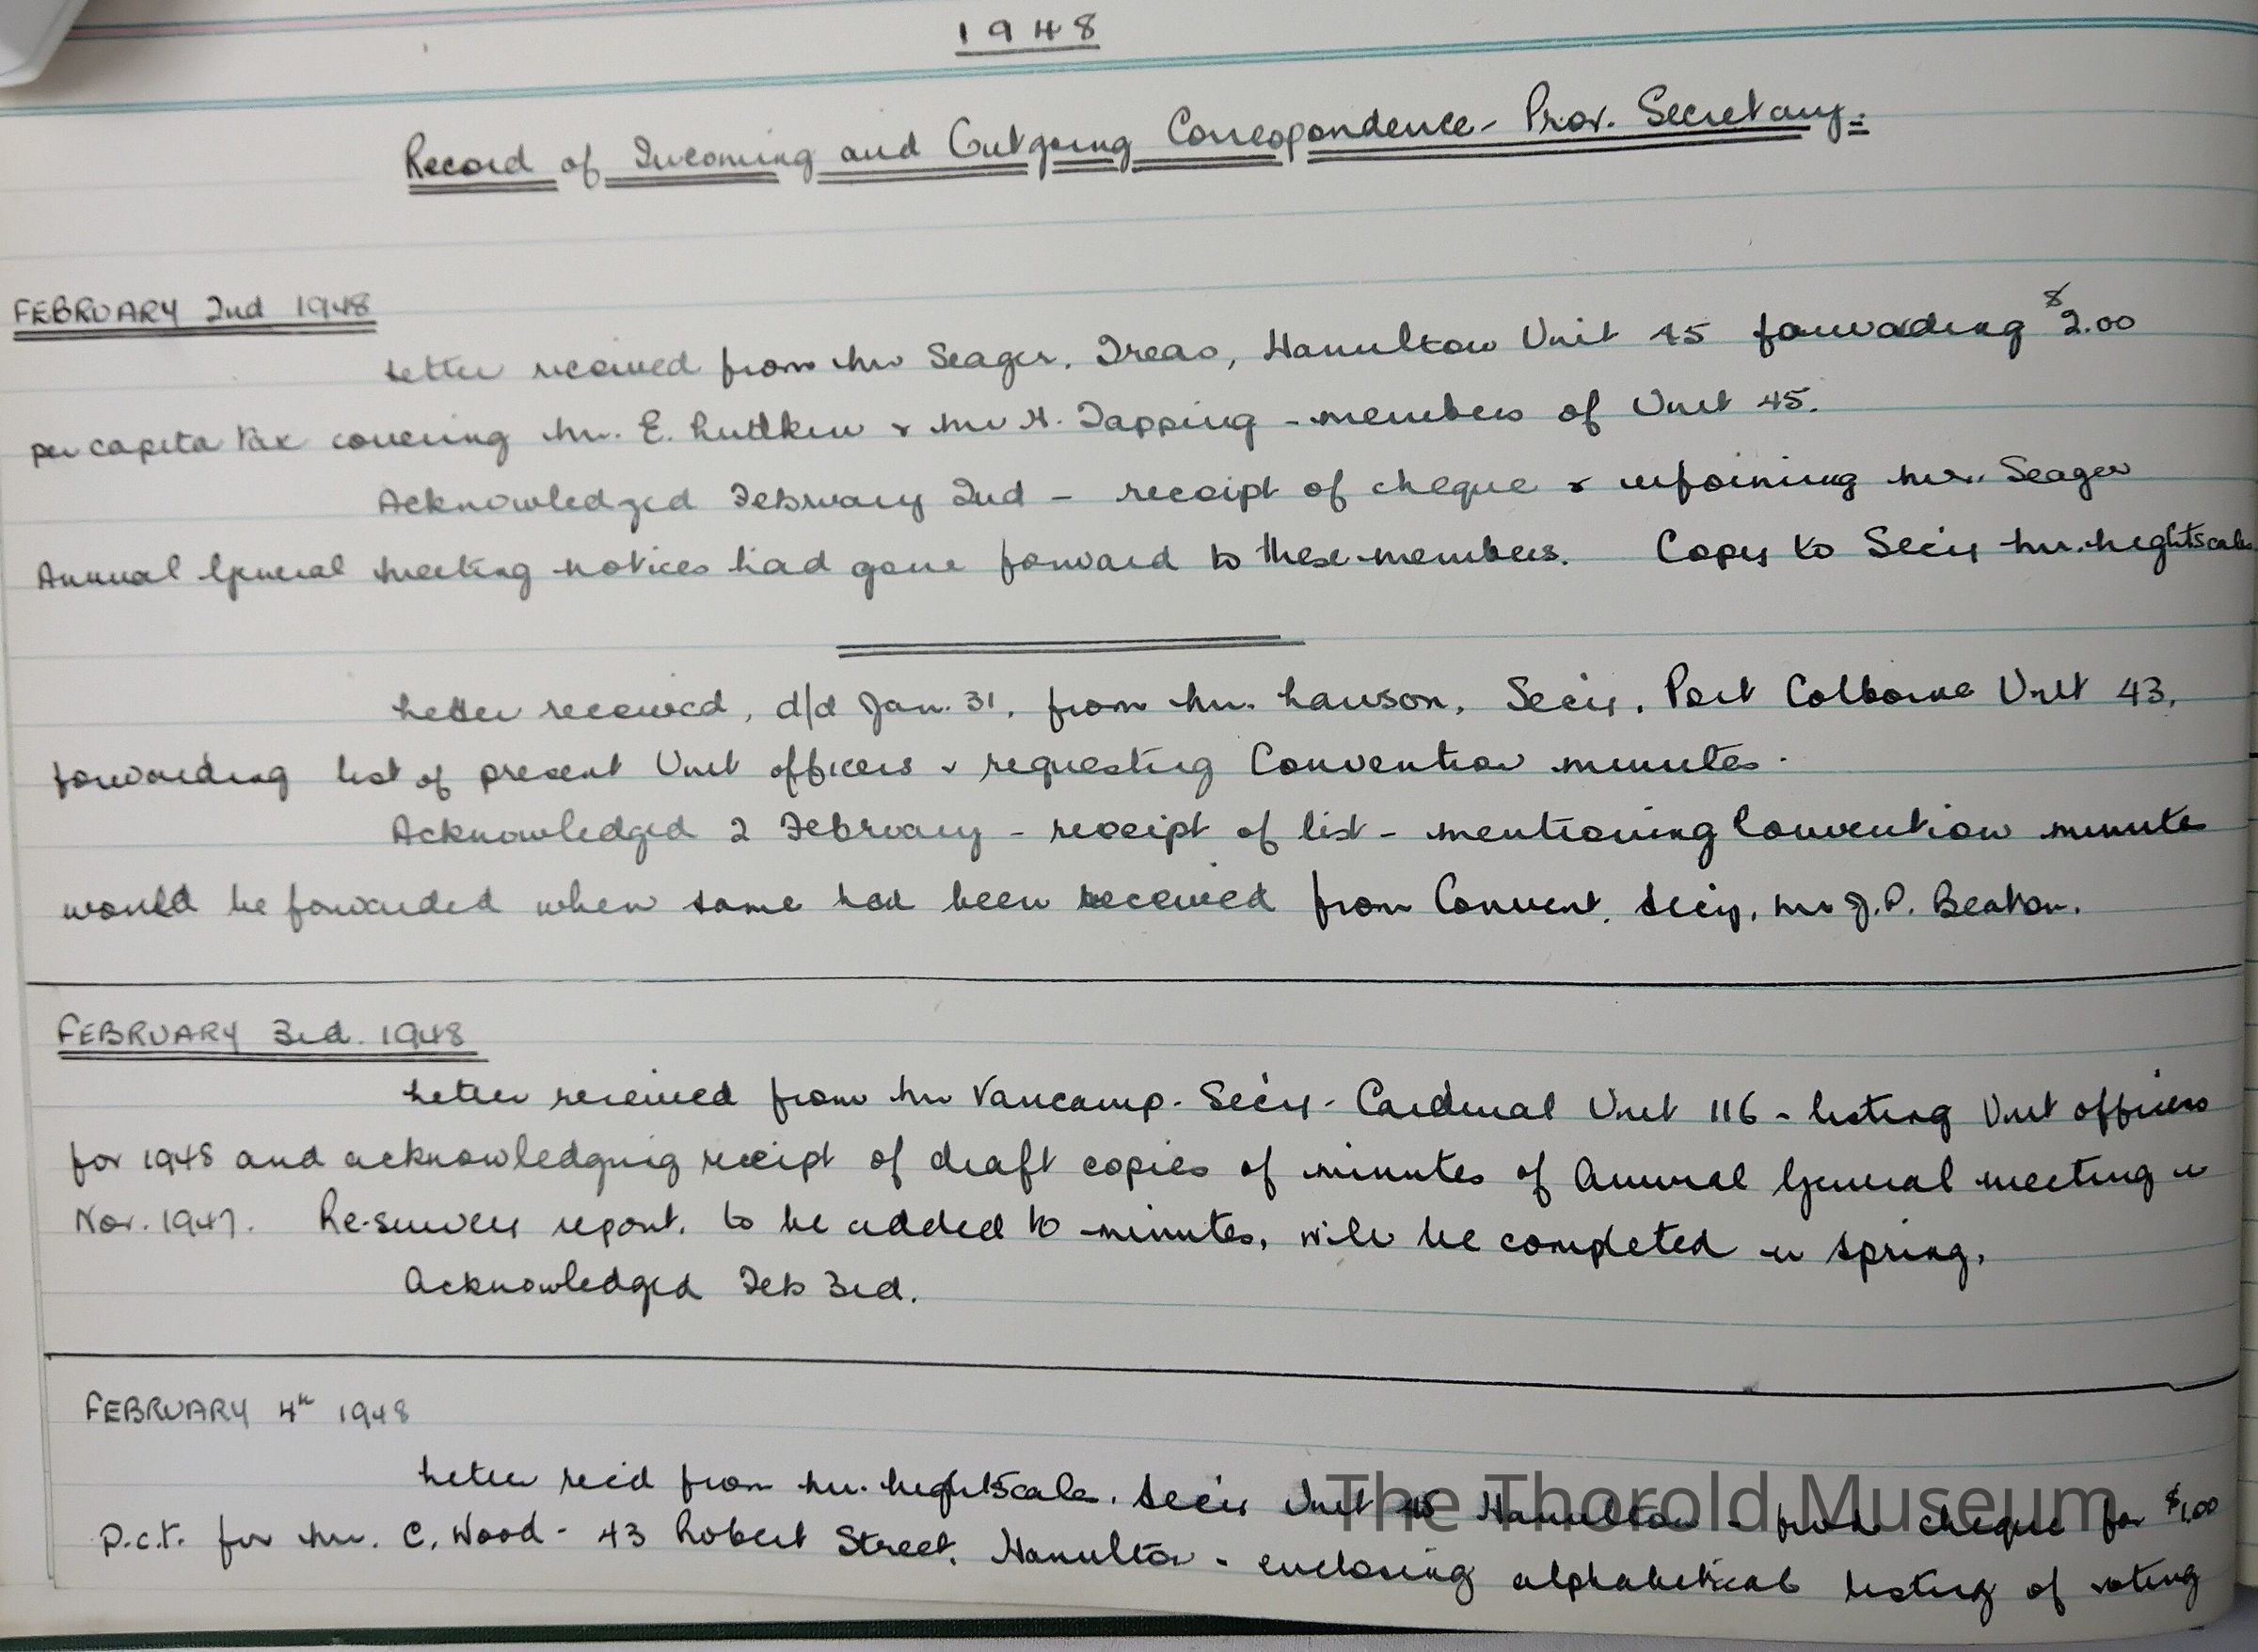 1948
Record of Incoming and Outgoing Correspondence - Prov. Secretary.
FEBRUARY 2nd 1948
Letter received from Mr Seager, Treas, Hamilton Unit 45 forwarding $2.00
per capita tax covering Mr. E. & Mr H. Tapping - members of Unit 45.
Acknowledged February 2nd - receipt of cheque & informing Mr. Seager
Annual General Meeting notices had gone forward to these members. Copy to Sec'y Mr. Lightscales
Letter received, d/d Jan. 31, from Mr. Lawson, Sec'y, Port Colborne Unit 43,
forwarding list of present Unit officers & requesting Convention minutes.
Acknowledged 2 February - receipt of list - mentioning Convention minutes
would be forwarded when same had been received from Convent. Sec'y, Mr J.P. Beaton.
FEBRUARY 3rd. 1948
Letter received from Mr Vancamp - Sec'y - Cardinal Unit 116 - listing Unit officers
for 1948 and acknowledging receipt of draft copies of minutes of Annual General Meeting in
Nov. 1947. Re-survey report, to be added to minutes, will be completed in spring.
Acknowledged Feb 3rd.
FEBRUARY 4th 1948
Letter rec'd from Mr. Lightscales, Sec'y Unit 45 Hamilton - with cheque for $1.00
P.C.T. for Mr. C. Wood - 43 Robert Street, Hamilton - enclosing alphabetical listing of voting
The Thorold Museum